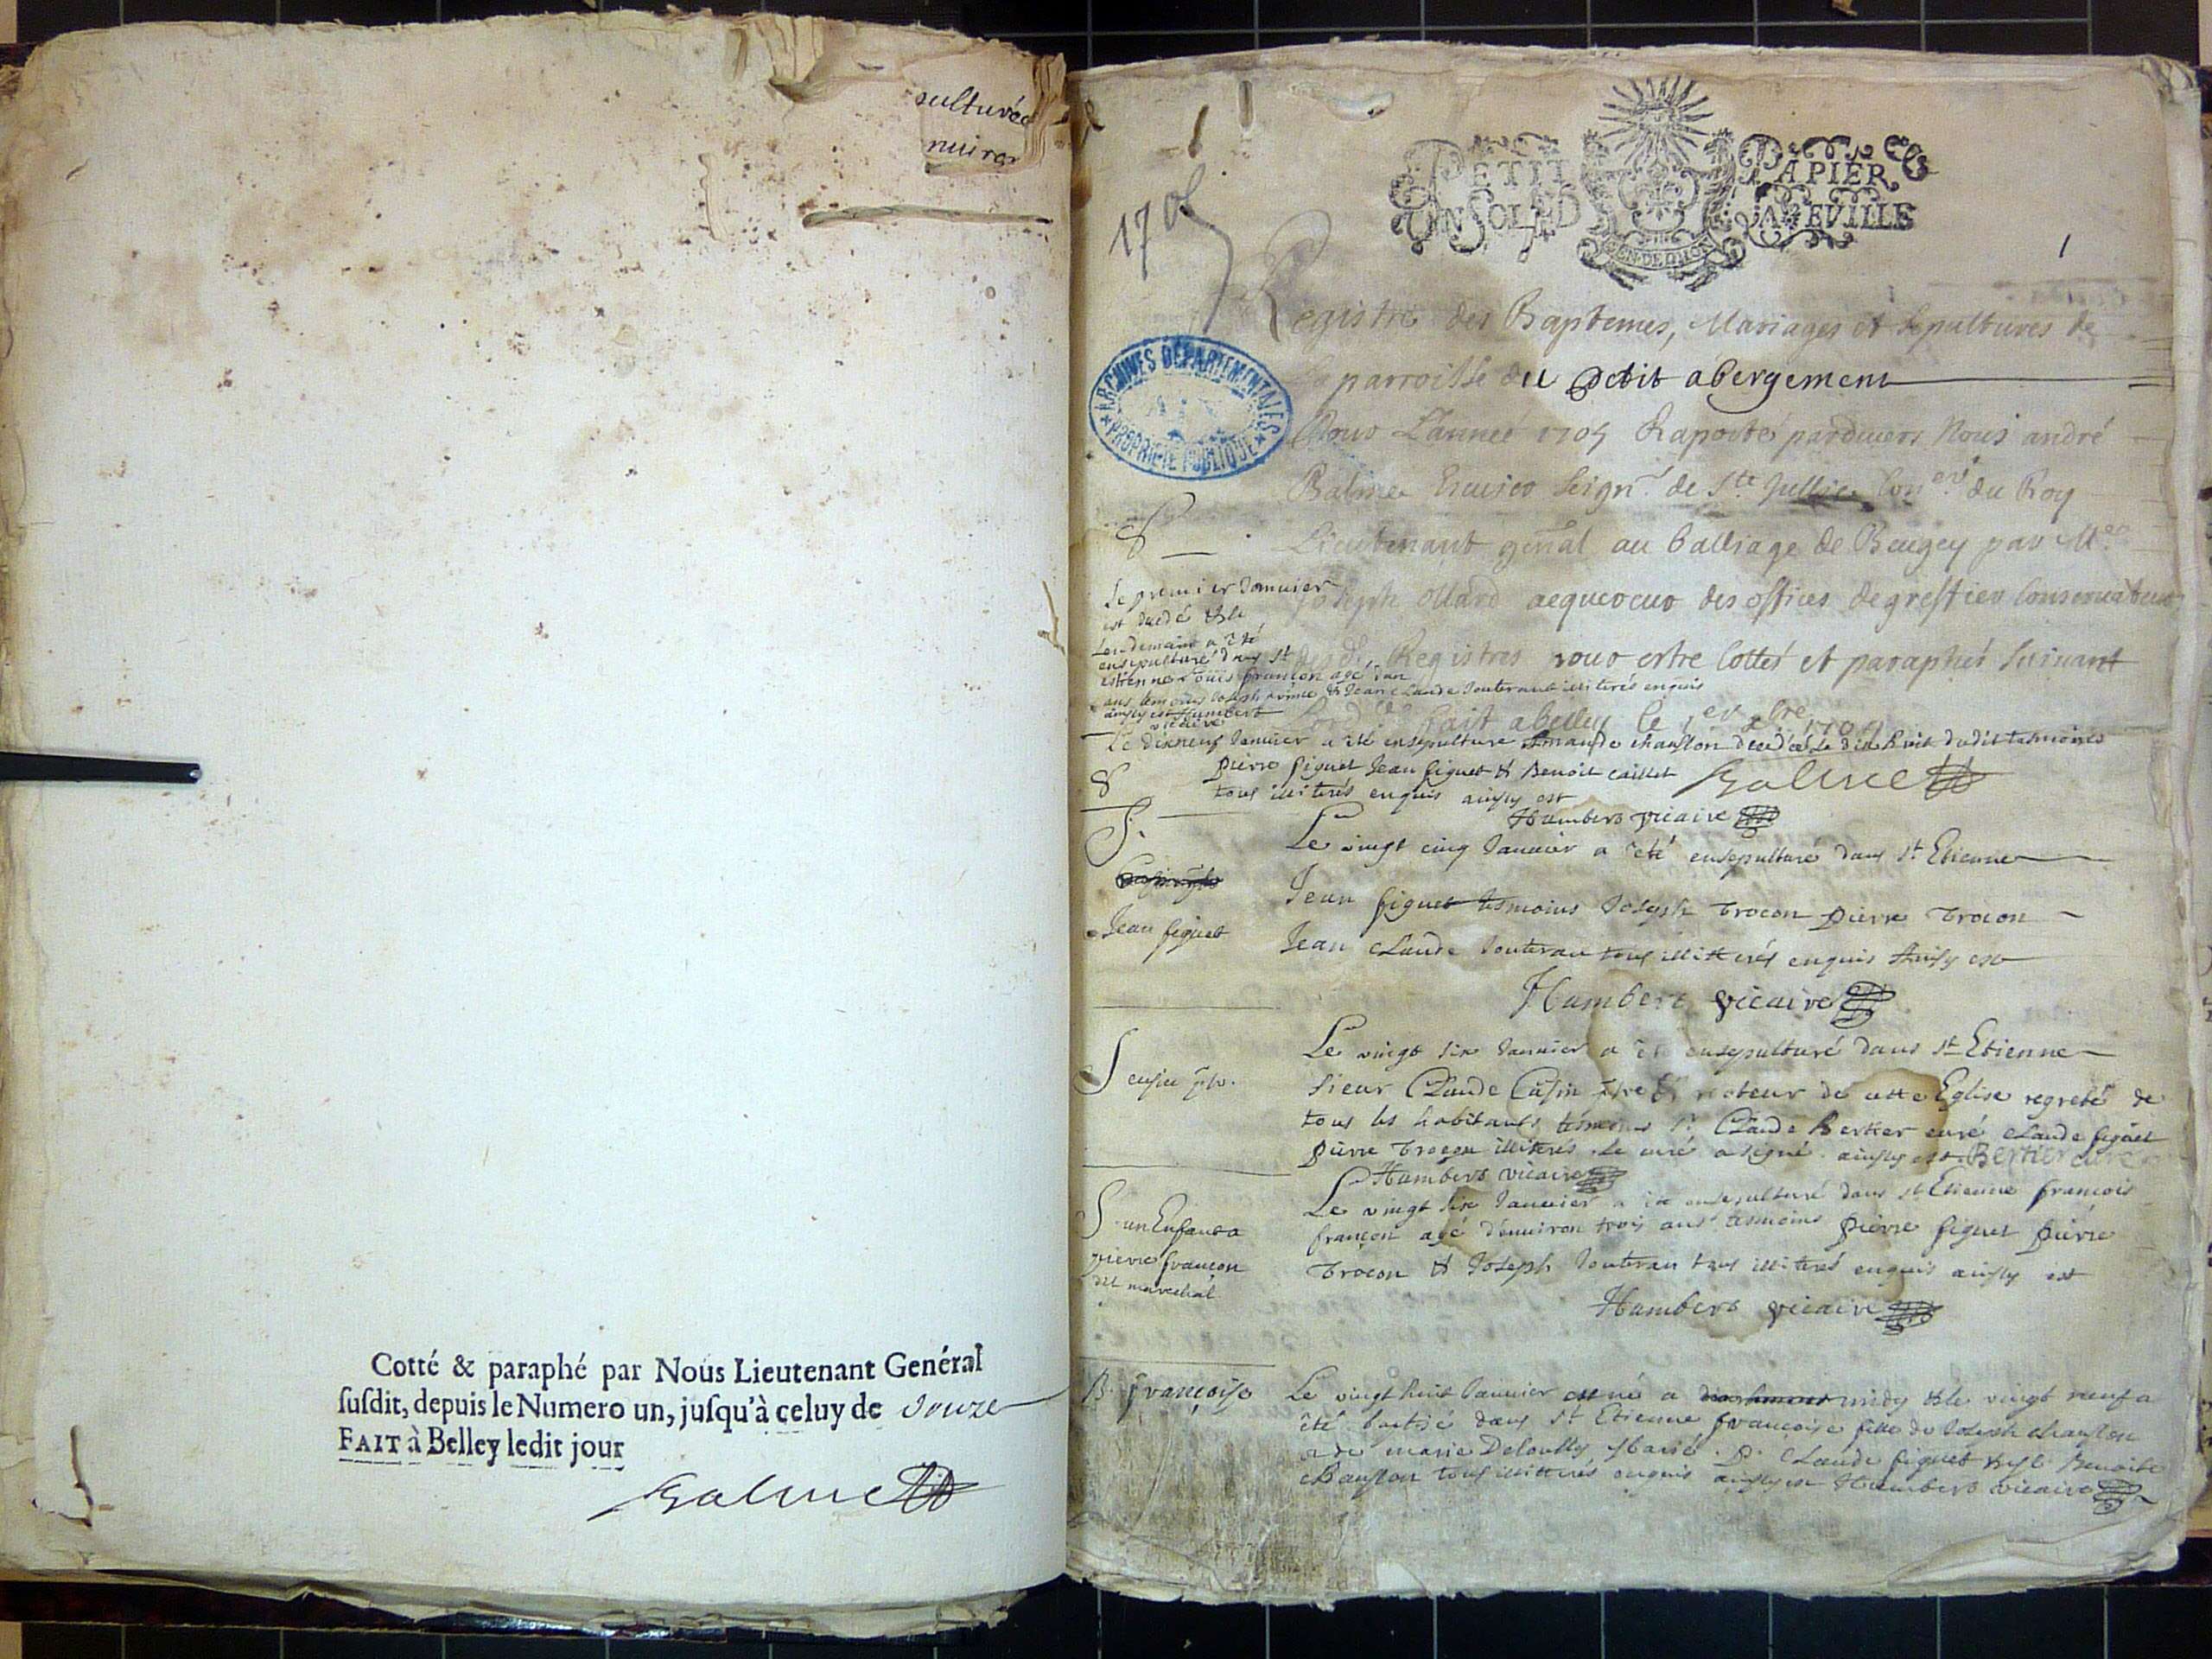 sulturée
Cotté & paraphé par Nous Lieutenant Genéral
ſuſdit, depuis le Numero un, juſqu'à celuy de douze
FAIT à Belley ledit jour
Balme
PETIT PAPIER
UN SOL 4 D LA FEUILLE
1705
1
ARCHIVES DÉPARTEMENTALES
PROPRIÉTÉ PUBLIQUE
Registre des Baptemes, Mariages et Sepultures de
la parroisse du petit abergement
Pour L'annee 1705 Raporté pardevers Nous andré
Balme Seignr. de Ste Jullie Coner. du Roy
Lieutenant gñal au balliage de Beugey par Me.
Joseph ollard acquereur des offices de greffier Conservateur
desd. Registres pour estre Cottés et paraphés Suivant
fait a belley le 1er xbre 1704
S
Le premier Janvier
est decedé & le
Lendemain a été
ensepulturé dans St
estienne Louis françon agé d'un
ans temoins Joseph & Jean claude Jouteraut illiterés enquis
ainsy est Humbert
vicaire
Le dixneuf Janvier a été ensepulturé chanslon decedé le dix huit dudit temoins
S
pierre figuet Jean figuet & Benoit caillet
Balme
tous illiterés enquis ainsy est
Humbert vicaire
S.
Jean figuet
Le vingt cinq Janvier a été ensepulturé dans St Etienne
Jean figuet tesmoins Joseph trocon pierre trocon
Jean claude Jouterau tous illitterés enquis Ainsy est
Humbert vicaire
S
Le vingt six Janvier a été ensepulturé dans St Etienne
Sieur Claude Casin recteur de cette Eglise regreté de
tous les habitants témoins Sr. Claude Bertier curé claude figuet
pierre trocon illiterés. Le curé a signé. ainsy est. Bertier curé
Humbert vicaire
S un Enfant a
pierre françon
dit marechal
Le vingt six Janvier a été ensepulturé dans St Etienne françois
françon agé d'environ trois ans tesmoins pierre figuet pierre
trocon & Joseph Jouterau tous illiterés enquis ainsy est
Humbert vicaire
B. françoise
Le vingt huit Janvier est né a midy & le vingt neuf a
été batisé dans St Etienne françoise fille de Joseph chanslon
& de marie P. Claude figuet Benoite
chanslon tous illitterés enquis ainsy est Humbert vicaire